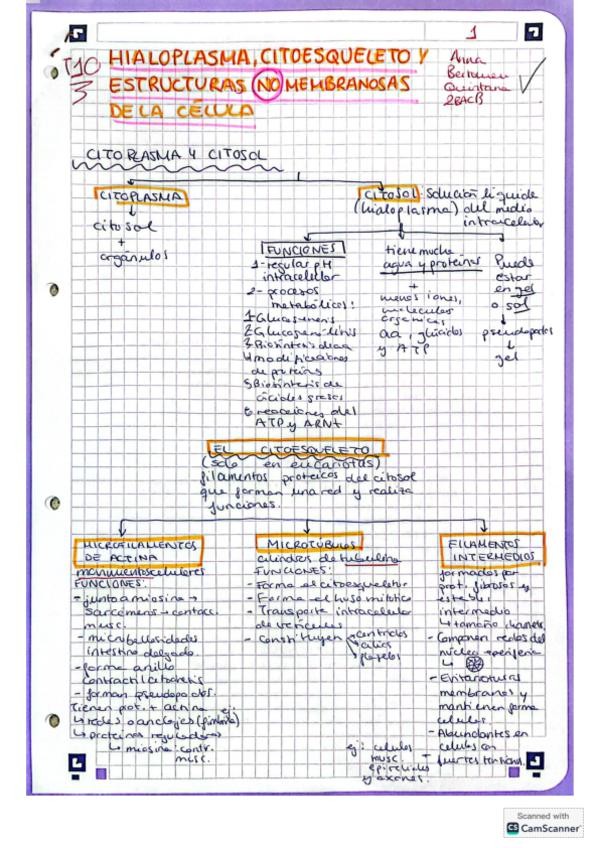 1
T10
3
HIALOPLASMA, CITOESQUELETO Y
ESTRUCTURAS NO MEMBRANOSAS
DE LA CÉLULA
Quintana
2BACB
CITOPLASMA Y CITOSOL
CITOPLASMA
citosol
+
orgánulos
CITOSOL: solución líquida
(hialoplasma) del medio
intracelular
FUNCIONES
1-regular pH
intracelular
2- procesos
metabólicos:
4 modificaciones
de proteínas
5 Biosíntesis de
ácidos grasos
6 reacciones del
ATP y ARNt
tiene mucha
agua y proteínas
+
menos iones,
moléculas
orgánicas
aa, glúcidos
y ATP
Puede
estar
en gel
o sol
pseudopodos
gel
EL CITOESQUELETO
(solo en eucariotas)
filamentos proteicos del citosol
que forman una red y realiza
funciones.
MICROFILAMENTOS
DE ACTINA
movimientos celulares
FUNCIONES:
- junto a miosina →
sarcómeros → contacc.
musc.
- microbellosidades
intestino delgado.
- forma anillo
contractil citocinesis
- forman pseudopodos.
Tienen prot. + actina ej:
↳ redes o anclajes (fimbrina)
↳ proteínas reguladoras
↳ miosina: contr.
musc.
MICROTÚBULOS
cilindros de tubulina
FUNCIONES:
- Forma el citoesqueleto
- Forma el huso mitótico
- Transporte intracelular
de vesículas
- Constituyen
centriolos
cilios
flagelos
FILAMENTOS
INTERMEDIOS
formados por
prot. fibrosas y
estable.
intermedio
↳ tamaño diámetro
- Componen redes del
núcleo → periferia
- Evitan roturas
membranas y
mantienen forma
celular.
- Abundantes en
células con
fuertes tensiones.
ej: células
musc.
epiteliales
y axones.
Scanned with
CS CamScanner